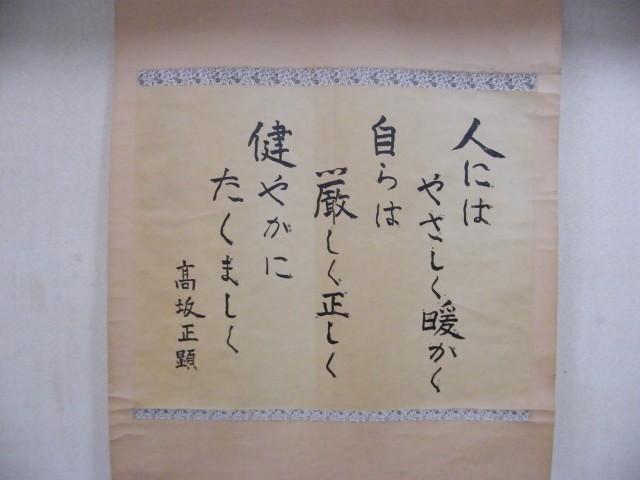 人には
やさしく暖かく
自らは
厳しく正しく
健やかに
たくましく
高坂正顕